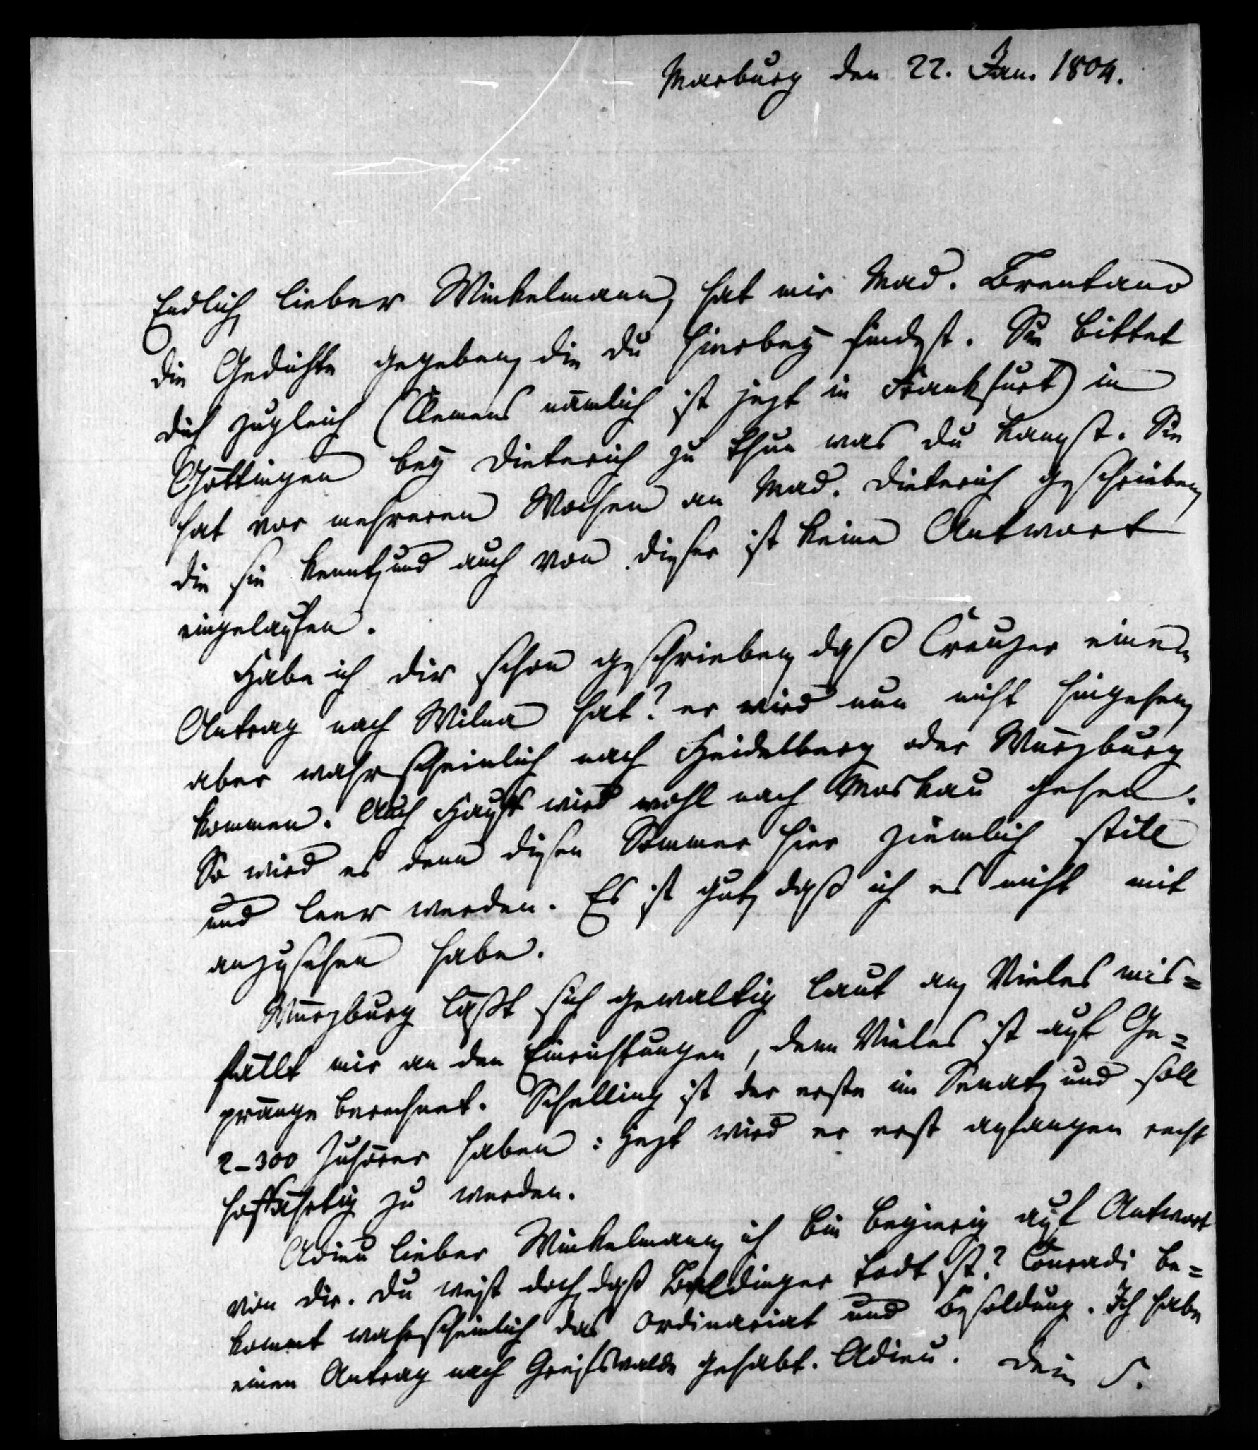 Marburg den 22. Jan. 1804.
Endlich lieber Winkelmann, hat mir Mad. Brentano
die Gedichte gegeben, die du hierbey findest. Sie bittet
dich zugleich (Clemens nämlich ist jezt in Frankfurt) in
Göttingen bey Dieterich zu thun was du kannst. Sie
hat vor mehreren Wochen an Mad. Dieterich geschrieben,
die sie kennt, und auch von dieser ist keine Antwort
eingelaufen.
Habe ich dir schon geschrieben, daß Creuzer einen
Antrag nach Wilna hat? er wird nun nicht hingehen,
aber wahrscheinlich nach Heidelberg oder Würzburg
kommen. Auch Hauff wird wohl nach Moskau gehen.
So wird es denn diesen Sommer hier ziemlich still
und leer werden. Es ist gut, daß ich es nicht mit
anzusehen habe.
Würzburg läßt sich gewaltig laut an, Vieles mis=
fällt mir an den Einrichtungen, denn Vieles ist auf Ge=
pränge berechnet. Schelling ist der erste im Senat, und soll
2–300 Zuhörer haben: jezt wird er erst anfangen recht
hoffährtig zu werden.
Adieu lieber Winkelmann, ich bin begierig auf Antwort
von dir. Du weist doch, daß Baldinger todt ist? Conradi be=
kommt wahrscheinlich das Ordinariat und Besoldung. Ich habe
einen Antrag nach Greifswalde gehabt. Adieu. Dein S.